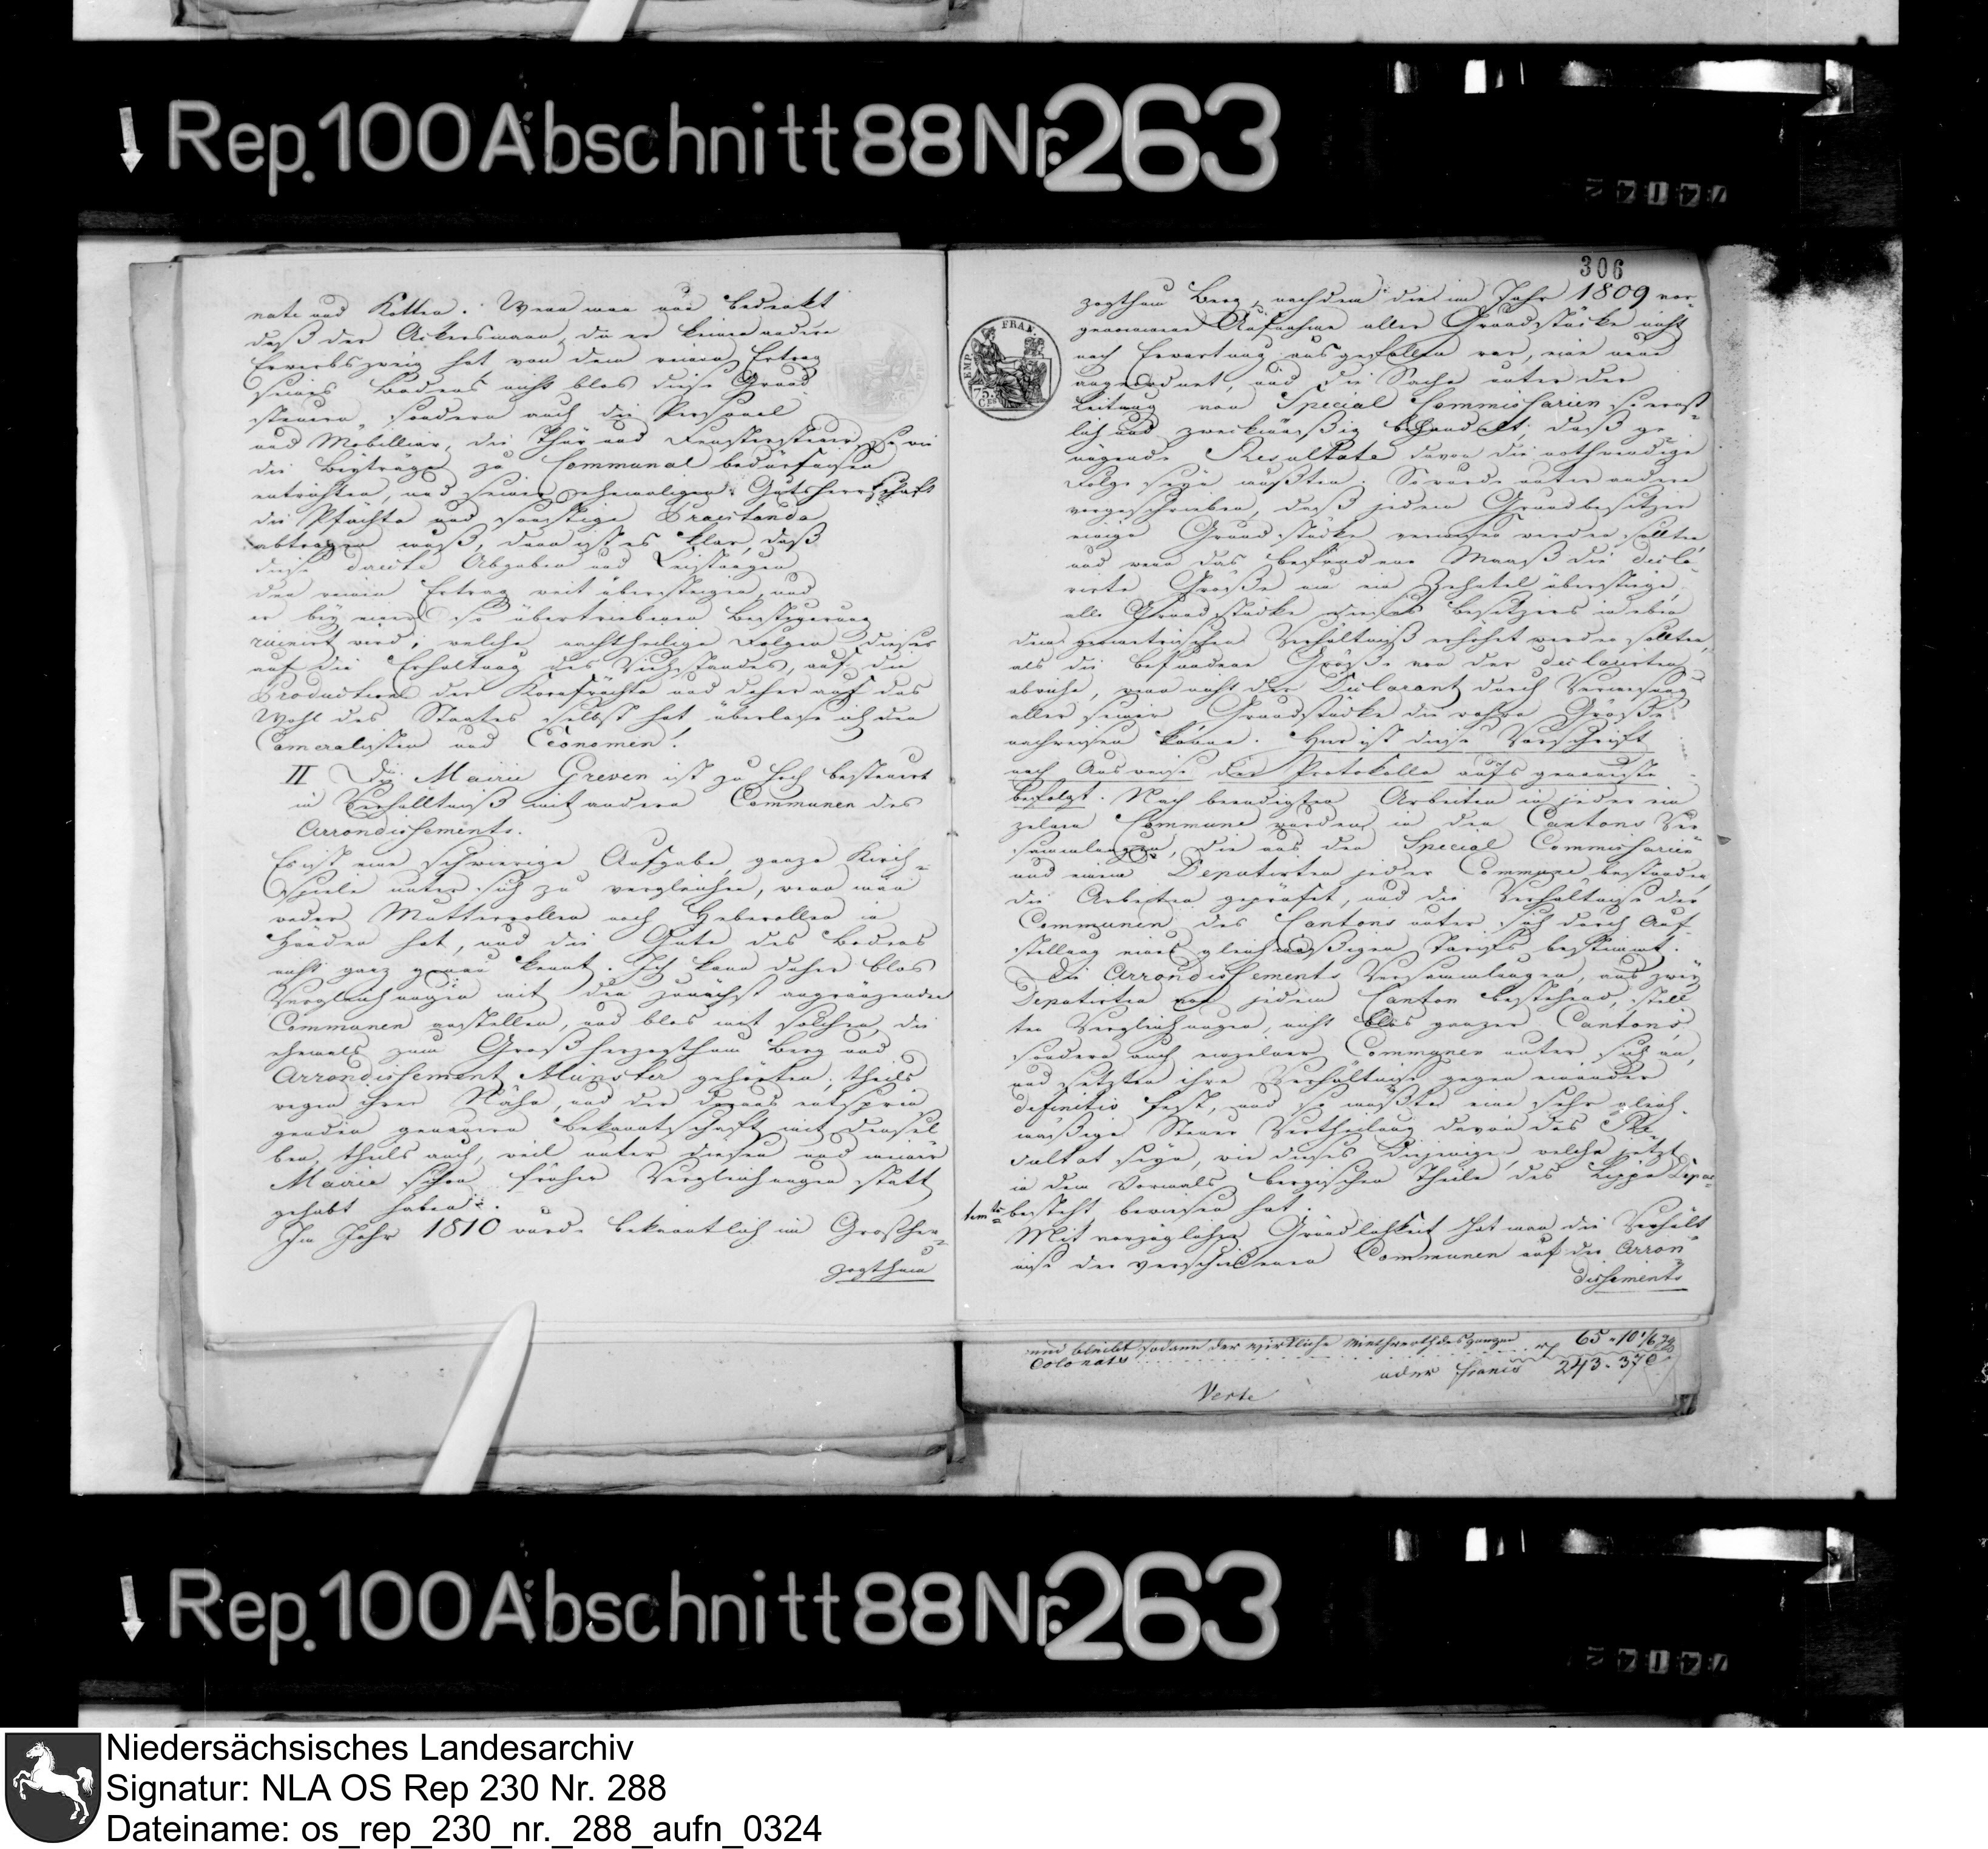 Rep. 100 Abschnitt 88 Nr. 263
nate und Kotten. Wenn man nun bedenkt
daß der Ackersmann, da er keinen andern
Erwerbszweig hat von dem reinen Ertrag
seines Bodens nicht blos diese Grund
steuern, sondern auch die Personal
und Mobiliar, die Thür und Fenstersteuer, so wie
die Beyträge zu Communal bedürfnißen
entrichten, und seiner ehemaligen Gutsherrschaft
die Pfächte und sonstige Praestanda
abtragen muß, dann ist es klar, daß
diese Abgaben und Leistungen
den reinen Ertrag weit übersteigen, und
er bey einer so übertriebenen Besteuerung
ruinirt wird; welche nachtheilige Folgen dieses
auf die Erhaltung des Viehstandes, auf die
Production der Kornfrüchte und daher auf das
Wohl des Staates selbst hat überlaße ich den
Cameralisten und Oeconomen!
II Die Mairie Greven ist zu hoch besteuert
in Verhältniß mit andern Communen des
Arrondissements.
Es ist eine schwierige Aufgabe, ganze Kirch-
spiele unter sich zu vergleichen, wenn man
weder Mutterrollen noch Heberollen in
Händen hat, und die Güte des Bodens
nicht ganz genau kennt. Ich kann daher blos
Vergleichungen mit den zunächst angränzenden
Communen anstellen, und blos mit solchen, die
ehemals zum Großherzogthum Berg und
Arrondissement Münster gehörten; theils
wegen ihrer Nähe, und der daraus entsprin
genden genauern Bekanntschaft mit densel
ben, theils auch, weil unter diesen und meiner
Mairie schon früher Vergleichungen statt
gehabt haben.
Im Jahr 1810 wurde bekanntlich im Großher-
zogthum
306
TIMP. FRAN.
zogthum Berg, nachdem die im Jahr 1809 vor-
genommene Aufnahme aller Grundstücke nicht
nach Erwartung ausgefallen war, eine neue
angeordnet, und die Sache unter der
Leitung von Special Commissarien so ernst-
lich und zweckmäßig behandelt, daß ge
nügende Resultate davon die nothwendige
Folge seyn mußten. So wurde unter andern
vorgeschrieben, daß jedem Grundbesitzer
einige Grundstücke vermessen werden sollten,
und wenn das befundene Maaß die decla
rirte Größe um ein Zehntel überstiege,
alle Grundstücke dieses Besitzers in eben
dem geometrischen Verhältniß erhöhet werden sollten,
als die befundene Größe von der declarirten
abwiche, wenn nicht der Declarant durch Vermessung
aller seiner Grundstücke die wahre Größe
nachweisen könne. Hier ist diese Vorschrift
nach Ausweise der Protokolle aufs genaueste
befolgt. Nach beendigten Arbeiten in jeder ein
zelnen Commune wurden in den Cantons Ver
sammlungen, die aus den Special Commissarien
und einem Deputirten jeder Commune bestanden,
die Arbeiten geprüfet, und die Verhältniße der
Communen des Cantons unter sich durch Auf
stellung eines gleichmäßigen Tarifs bestimmt.
Die Arrondissements Versammlungen, aus zwey
Deputirten von jedem Canton bestehend, stell
ten Vergleichungen, nicht blos ganzer Cantons,
sondern auch einzelner Communen unter sich an,
und setzten ihre Verhältniße gegen einander
definitiv fest, und so mußte eine sehr gleich-
mäßige Steuer Vertheilung davon das Re-
sultat seyn, wie dieses diejenige, welche jetzt
in dem vormals bergischen Theile des Lippe Depar-
temts besteht bewiesen hat.
Mit vorzüglicher Gründlichkeit hat man die Verhält
niße der verschiedenen Communen auf die Arron
dissements
und bleibt sodann der wirkliche Miethwerth des ganzen
Colonats 65 - 10 1/6
oder francs 243 - 37 C
Verte
Rep. 100 Abschnitt 88 Nr. 263
Niedersächsisches Landesarchiv
Signatur: NLA OS Rep 230 Nr. 288
Dateiname: os_rep_230_nr._288_aufn_0324